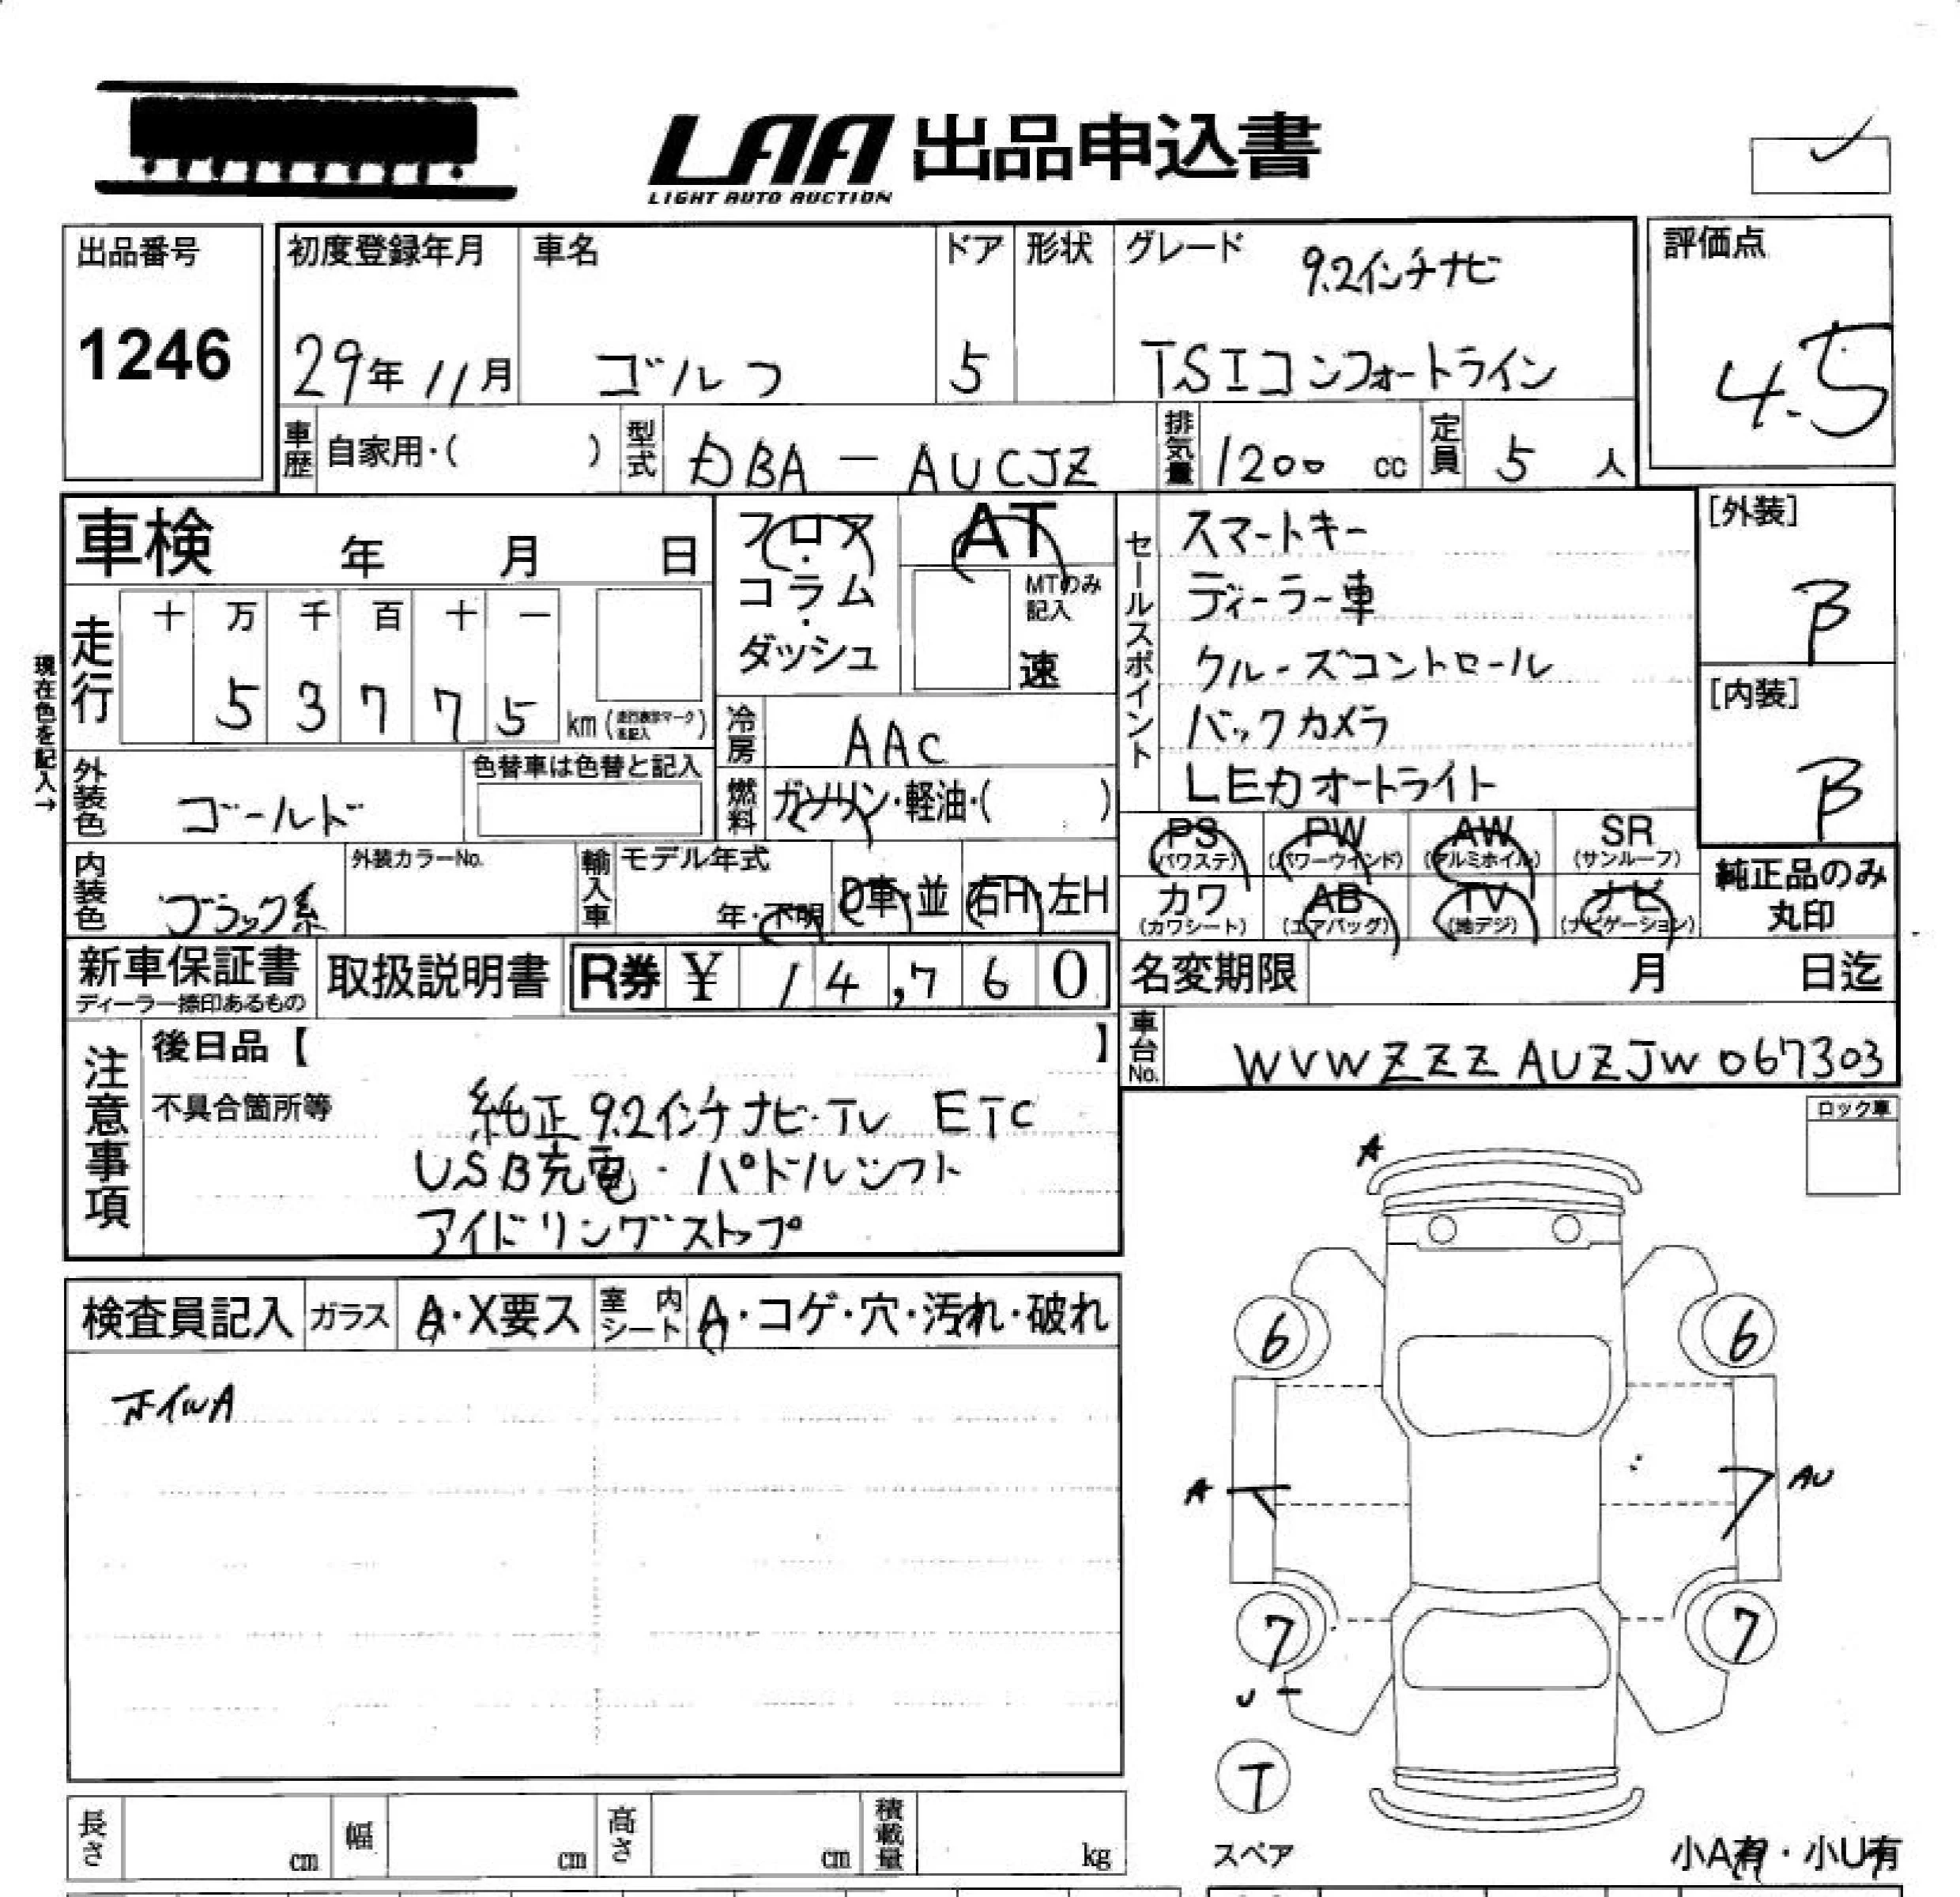 LAA 出品申込書
LIGHT AUTO AUCTION
出品番号
1246
初度登録年月
29年11月
車名
ゴルフ
ドア
5
形状
グレード
9.2インチナビ
TSIコンフォートライン
評価点
4.5
車歴 自家用・( )
型式 DBA - AUCJZ
排気量 1200 cc
定員 5 人
車検 年 月 日
フロア・コラム・ダッシュ
AT
MTのみ記入
速
セールスポイント
スマートキー
ディーラー車
クルーズコントロール
バックカメラ
LEDオートライト
[外装]
B
[内装]
B
現在色を記入→
走行
十 万 千 百 十 一
5 3 7 7 5 km (走行表示マーク未記入)
冷房 AAC
燃料 ガソリン・軽油・( )
外装色 ゴールド
色替車は色替と記入
内装色 ブラック系
外装カラーNo.
輸入車 モデル年式
年・不明
D車・並
右H・左H
PS (パワステ)
PW (パワーウインド)
AW (アルミホイル)
SR (サンルーフ)
カワ (カワシート)
AB (エアバッグ)
TV (地デジ)
ナビ (ナビゲーション)
純正品のみ
丸印
新車保証書
ディーラー捺印あるもの
取扱説明書
R券 ¥ 14,760
名変期限 月 日迄
車台No. WVWZZZAUZJW067303
注意事項
後日品【 】
不具合箇所等
純正9.2インチナビ・TV ETC
USB充電・パドルシフト
アイドリングストップ
ロック車
検査員記入
ガラス A・X要ス
室内シート A・コゲ・穴・汚れ・破れ
ホイルA
A
6 6
A AU
7 7
U
T
スペア
小A有・小U有
長さ cm
幅 cm
高さ cm
積載量 kg